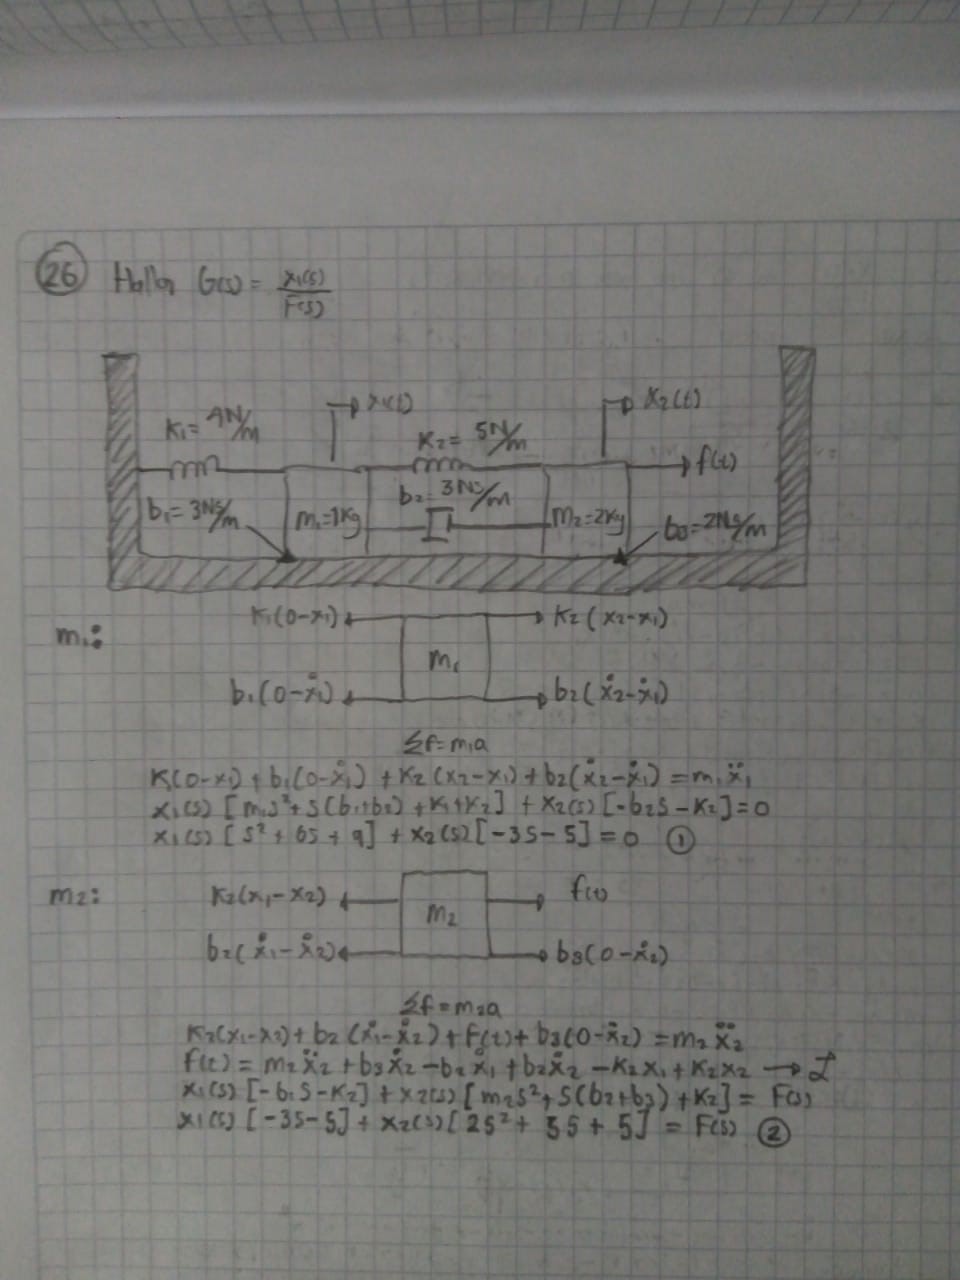 26 Hallar G(s) = x1(s)/F(s)
x1(t)
x2(t)
K1= 4N/m
K2= 5N/m
f(t)
b1= 3Ns/m
b2= 3Ns/m
m1=1Kg
m2=2Kg
b3=2Ns/m
m1:
K1(0-x1)
K2(x2-x1)
m1
b1(0-ẋ1)
b2(ẋ2-ẋ1)
Σf=m1a
K(0-x1)+b1(0-ẋ1)+K2(x2-x1)+b2(ẋ2-ẋ1)=m1ẍ1
x1(s)[m1s²+s(b1+b2)+K1+K2]+x2(s)[-b2s-K2]=0
x1(s)[s²+6s+9]+x2(s)[-3s-5]=0 ①
m2:
K2(x1-x2)
f(t)
m2
b2(ẋ1-ẋ2)
b3(0-ẋ2)
Σf=m2a
K2(x1-x2)+b2(ẋ1-ẋ2)+f(t)+b3(0-ẋ2)=m2ẍ2
f(t)=m2ẍ2+b3ẋ2-b2ẋ1+b2ẋ2-K2x1+K2x2→ℒ
x1(s)[-b2s-K2]+x2(s)[m2s²+s(b2+b3)+K2]=F(s)
x1(s)[-3s-5]+x2(s)[2s²+5s+5]=F(s) ②